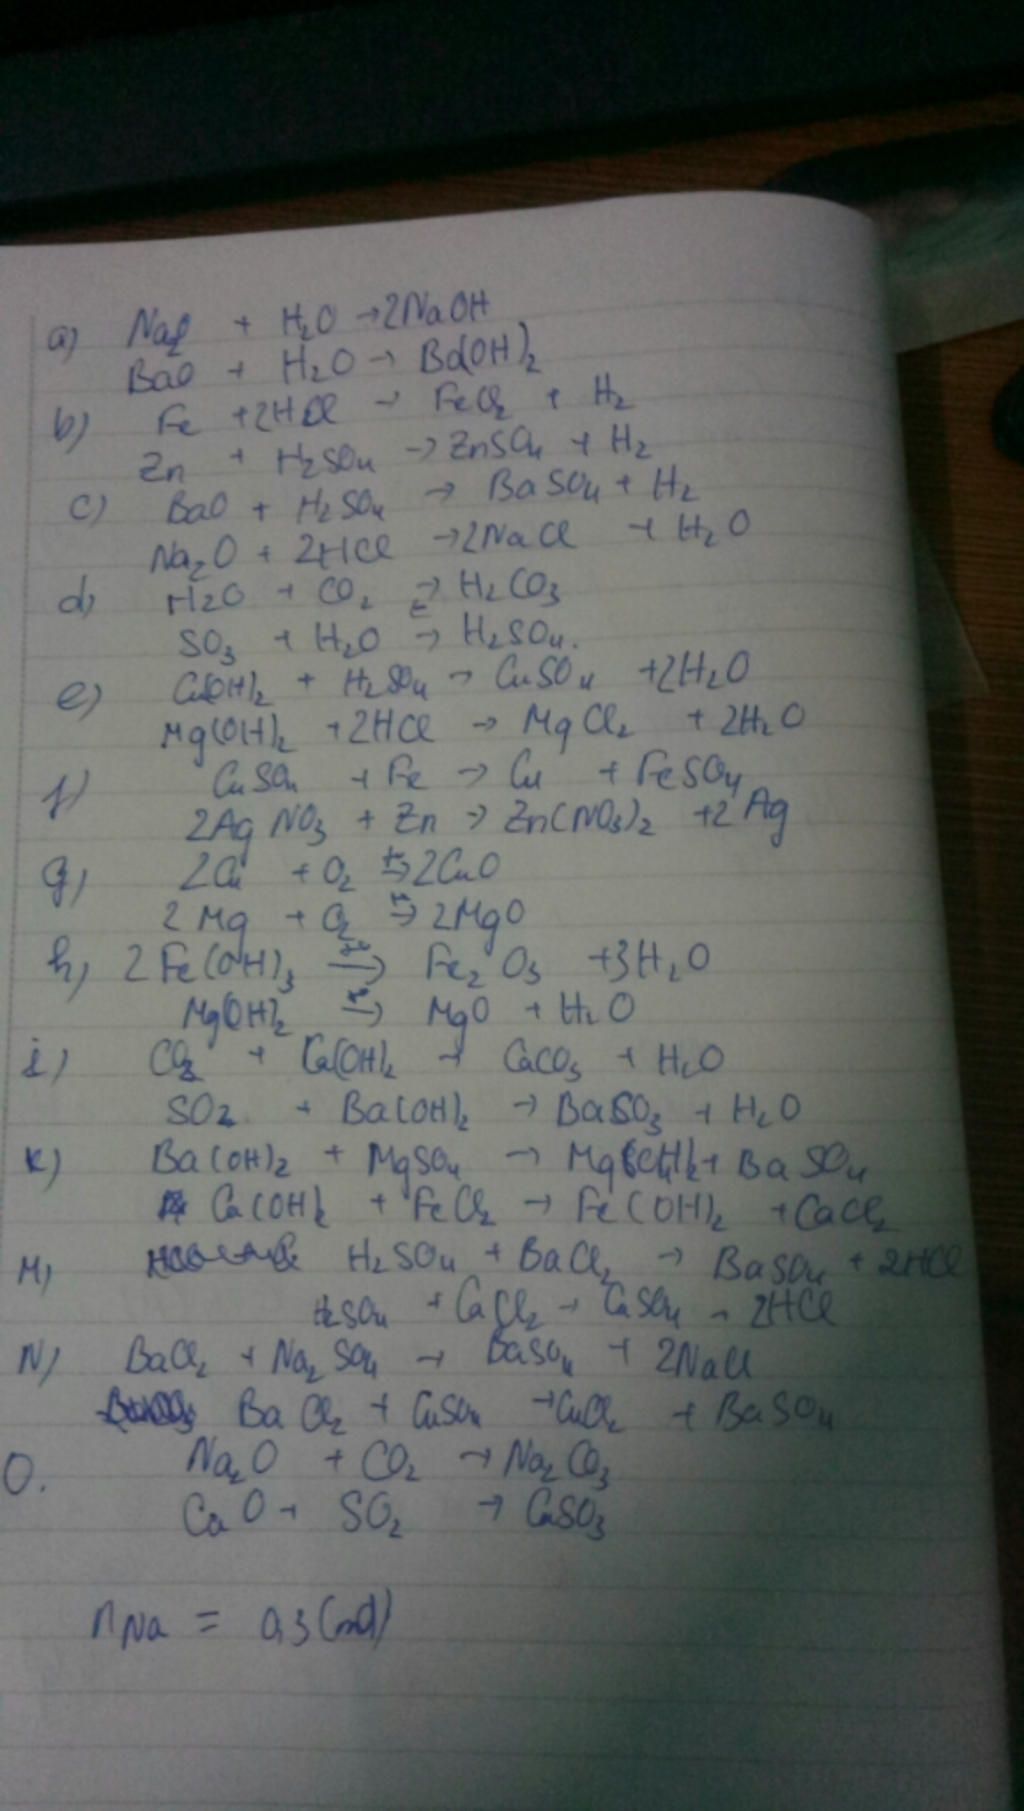 a) Na2O + H2O → 2NaOH
BaO + H2O → Ba(OH)2
b) Fe + 2HCl → FeCl2 + H2
Zn + H2SO4 → ZnSO4 + H2
c) BaO + H2SO4 → BaSO4 + H2
Na2O + 2HCl → 2NaCl + H2O
d) H2O + CO2 → H2CO3
SO3 + H2O → H2SO4.
e) Cu(OH)2 + H2SO4 → CuSO4 + 2H2O
Mg(OH)2 + 2HCl → MgCl2 + 2H2O
f) CuSO4 + Fe → Cu + FeSO4
2AgNO3 + Zn → Zn(NO3)2 + 2Ag
g) 2Cu + O2 → 2CuO
2Mg + O2 → 2MgO
h) 2Fe(OH)3 → Fe2O3 + 3H2O
Mg(OH)2 → MgO + H2O
i) CO2 + Ca(OH)2 → CaCO3 + H2O
SO2 + Ba(OH)2 → BaSO3 + H2O
K) Ba(OH)2 + MgSO4 → Mg(OH)2 + BaSO4
Ca(OH)2 + FeCl2 → Fe(OH)2 + CaCl2
M) H2SO4 + BaCl2 → BaSO4 + 2HCl
H2SO4 + CaCl2 → CaSO4 - 2HCl
N) BaCl2 + Na2SO4 → BaSO4 + 2NaCl
BaCl2 + CuSO4 → CuCl2 + BaSO4
O. Na2O + CO2 → Na2CO3
CaO + SO2 → CaSO3
nNa = 0,3(mol)